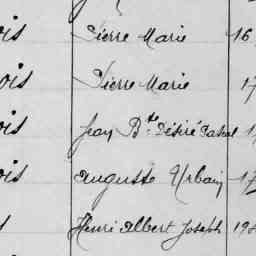 ois Pierre Marie 16
ois Pierre Marie 17
ois Jean Bte Désiré Pascal
ois Auguste Urbain 17
Henri Albert Joseph 19